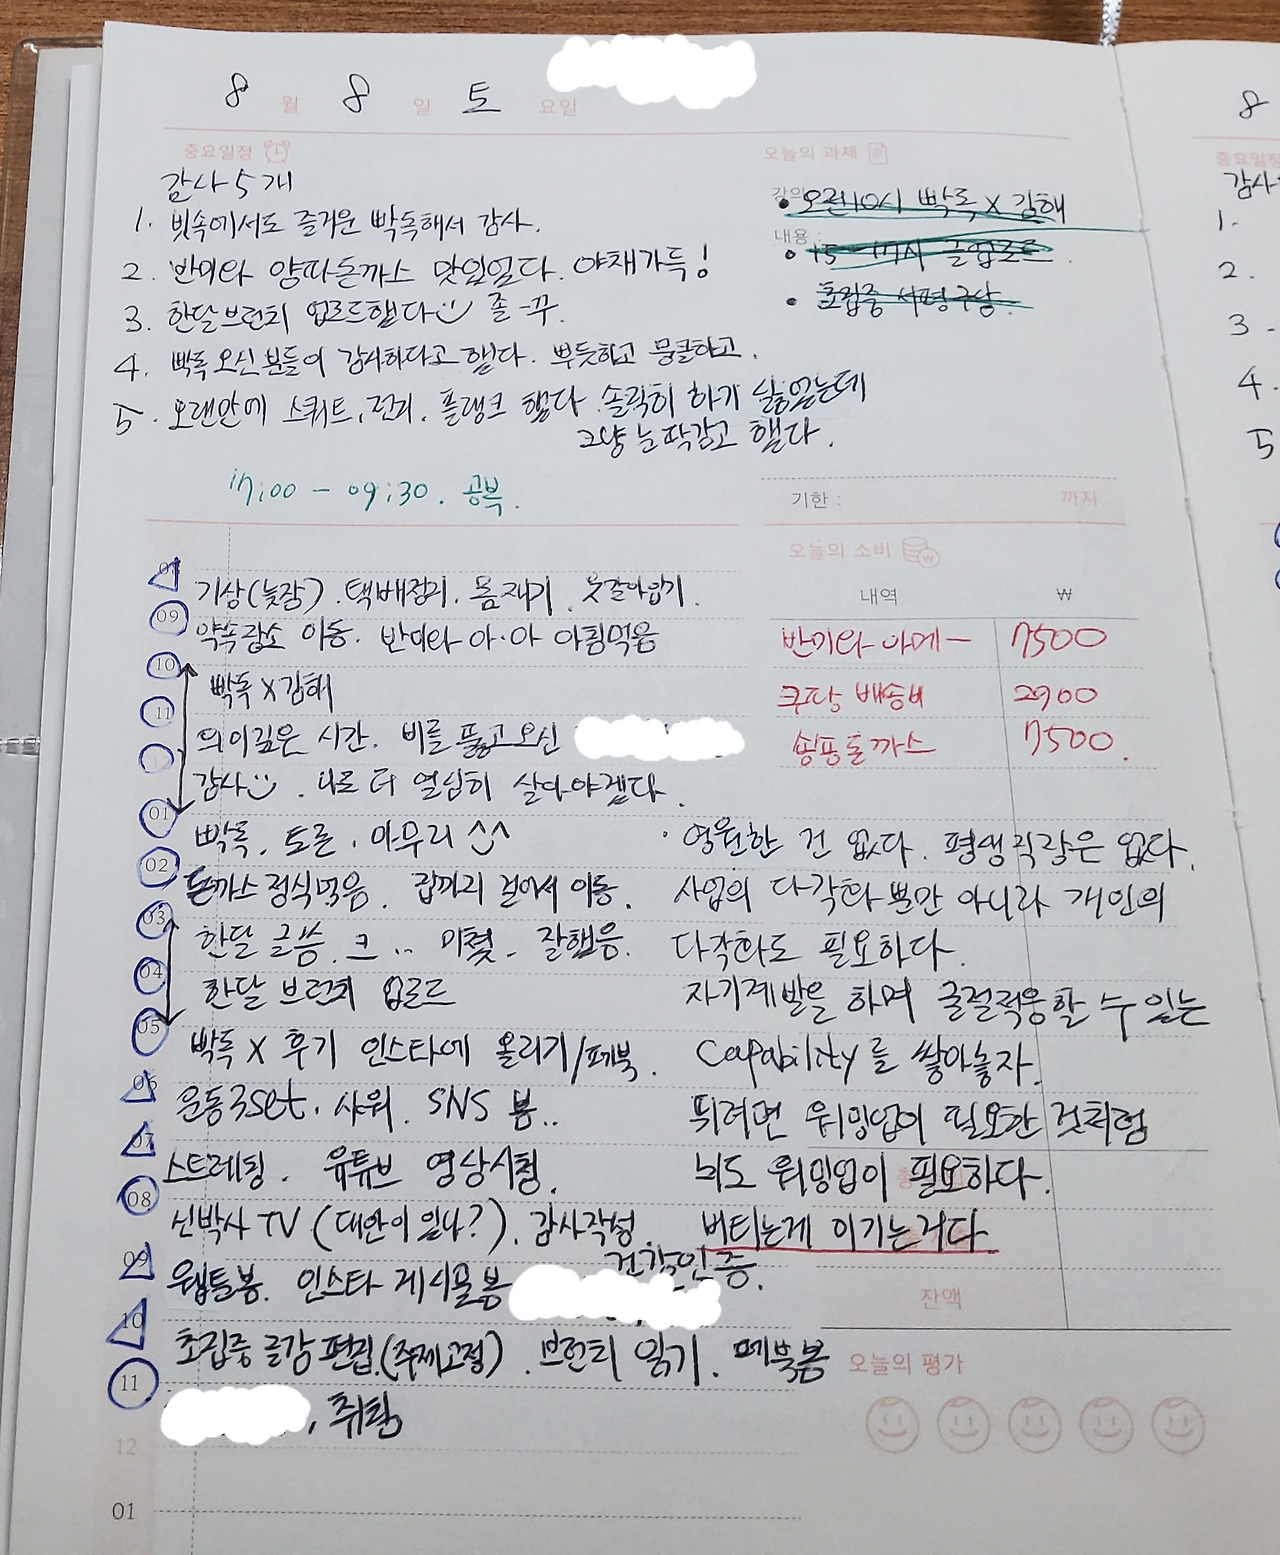 8 월 8 일 토 요일
중요일정
감사 5개
1. 빗속에서도 즐거운 빡독해서 감사.
2. 반미와 양파돈까스 맛있었다. 야채가득!
3. 한달브런치 업로드했다 졸-꾸.
4. 빡독 오신 분들이 감사하다고 했다. 뿌듯하고 뭉클하고.
5. 오랜만에 스쿼트, 런지, 플랭크 했다 솔직히 하기 싫었는데
그냥 눈 딱감고 했다.
오늘의 과제
강의
• 오전10시 빡독 X 김해
내용 :
• 글업로드
• 초집중 서평구상.
17:00 - 09:30. 공부.
기한 : 까지
08
기상(늦잠). 택배정리. 몸재기. 옷갈아입기.
09
약속장소 이동. 반미와 아·아 아침먹음
10
빡독 X 김해
11
의미깊은 시간. 비를 뚫고오신
감사 . 나도 더 열심히 살아야겠다.
01
빡독. 토론. 마무리 ^^
02
돈까스정식먹음. 집까지 걸어서 이동.
03
한달 글씀. 크.. 미쳤. 잘했음.
04
한달 브런치 업로드
05
빡독 X 후기 인스타에 올리기/페북.
06
운동3set. 샤워. SNS 봄..
07
스트레칭. 유튜브 영상시청.
08
신박사TV (대안이 있나?). 감사작성.
09
웹툰봄. 인스타 게시물봄
인증.
10
초집중 글감 편집.(주제고정). 브런치 읽기. 페북봄
11
, 취침
12
01
오늘의 소비
내역 ₩
반미와 아메- 7500
쿠팡 배송비 2900
돈까스 7500.
· 영원한 건 없다. 평생직장은 없다.
사업의 다각화 뿐만 아니라 개인의
다각화도 필요하다.
자기계발을 하며 굴절적응할 수 있는
Capability를 쌓아놓자.
뛰려면 워밍업이 필요한 것처럼
뇌도 워밍업이 필요하다.
버티는게 이기는거다
잔액
오늘의 평가
8
중요일정
감사
1.
2.
3.
4.
5